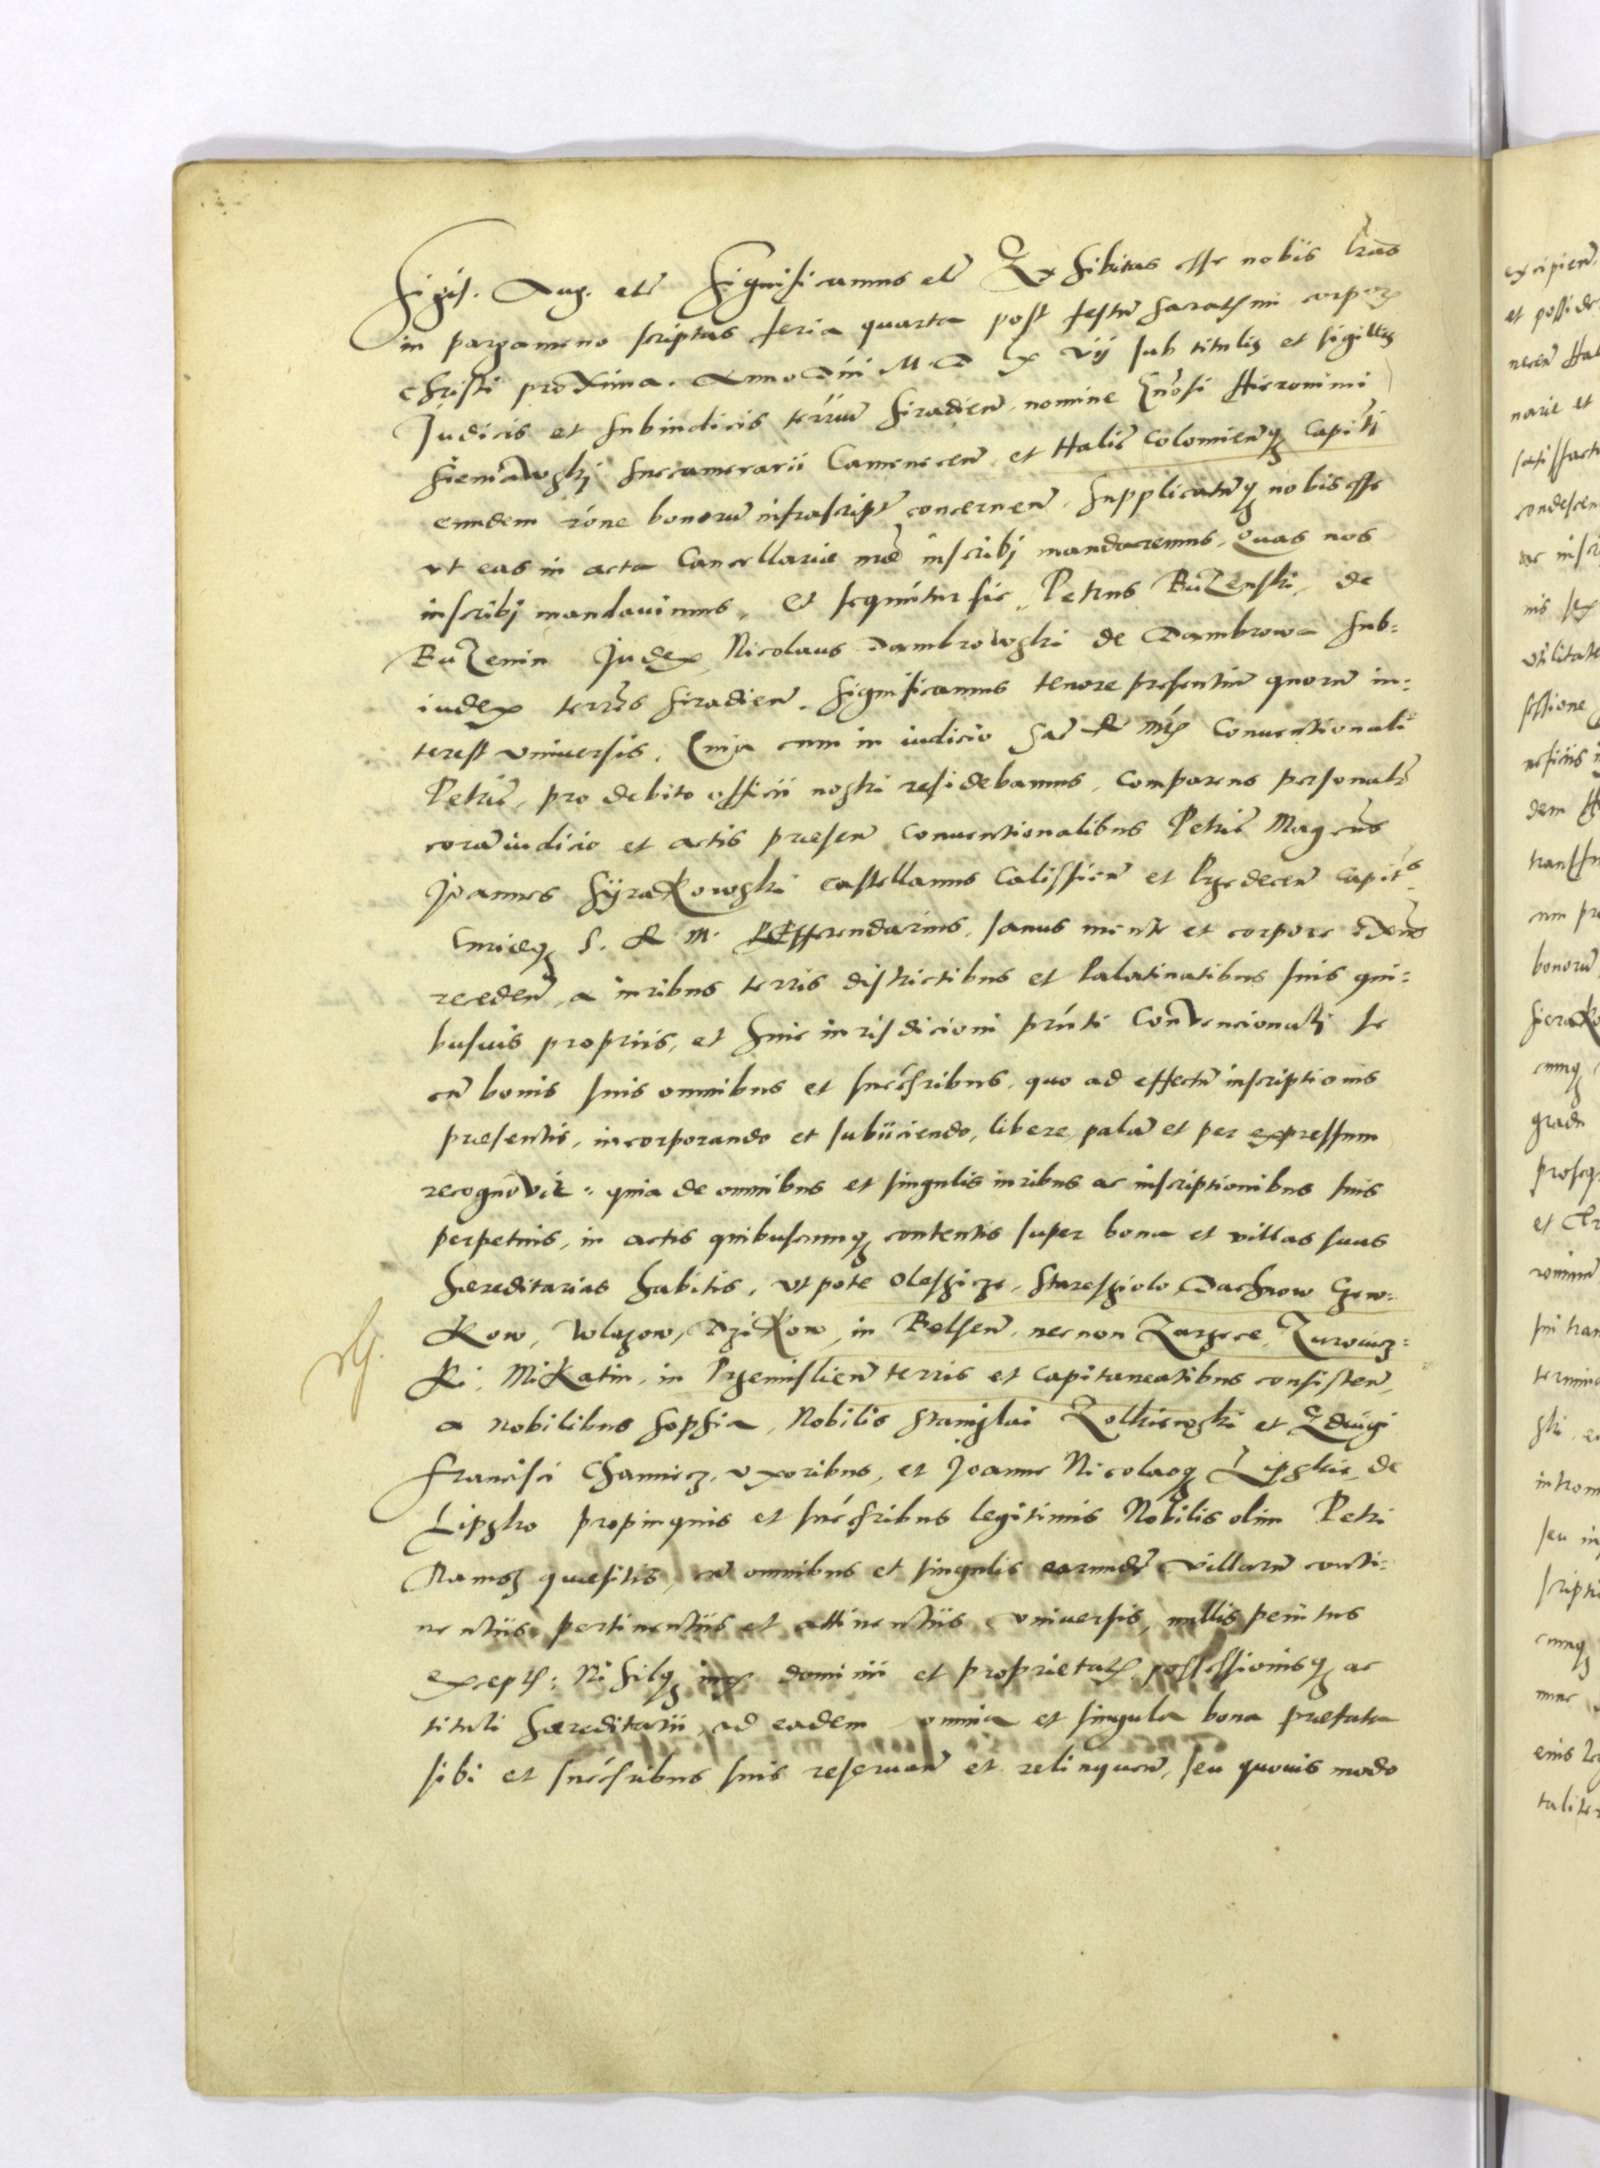 Sigis. Aug. etc Significamus etc Exhibitas esse nobis lras
in pargameno scriptas feria quarta post festum sacratssmi corporis
Christi proxima. Anno Dni M. D lx vij sub titulis et sigillis
Judicis et subiudicis terrarum Siradien. nomine Gnosi Hieronimi
Sieniawski succamerarii Camenecen. et Halic Colomienq Capiti
eundem rone bonorum infrascript concernen. Supplicatumq nobis esse
vt eas in acta Cancellarie nre inscribj mandaremus, Quas nos
inscribj mandauimus, Et sequntur sic. Petrus Buzenski, de
Buzenin Judex, Nicolaus Dambrowski de Dambrowa Sub-
iudex terres Siradien. Significamus tenore presentium quorum in-
terest vniuersis, Quia cum in iudicio Sac R Mtis Conuentionali
Petric, pro debito officii nostri residebamus, Comparens personalr
coram iudicio et actis presen Conuentionalibus Petric Magcus
Joannes Syrakowski castellanus Calissien et Przedecen Capits
Curieq S. R. M. Refferendarius, sanus mente et corpore exns
receden a iuribus terris districtibus et Palatinatibus suis qui-
busuis propriis, et huic iurisdicioni prnti Convencionali se
cum bonis suis omnibus et succesribus, quo ad effectum inscriptionis
presentis, incorporando et subiiciendo, libere palam et per expressum
recognovit: quia de omnibus et singulis iuribus ac inscriptionibus suis
perpetuis, in actis quibuscunq contentis super bona et villas suas
haereditarias habitis, vt pote Oleszicze, Staresziolo Dachnow
kow, Dzikow, in Belsen, nec non Zarzecze,
ki, Mikatin, in Przemislien terris et Capitaneatibus consisten,
a Nobilibus Sophia, Nobilis Stanislai Zolkiewski et
Francisci vxoribus, et Joanne Nicolaoq Lipskie, de
Lipsko propinquis et succesribus legitimis Nobilis olim Petri
Ramsz quesitis, cum omnibus et singulis earundem villarum conti-
nentiis pertinentiis et attinentiis vniuersis, nullis penitus
exceptis: Nihilq iuris dominii et proprietatis possessionisq ac
tituli haereditarii, ad eadem omnia et singula bona prefata
sibi et succesribus suis reseruan et relinquen, seu quouis modo